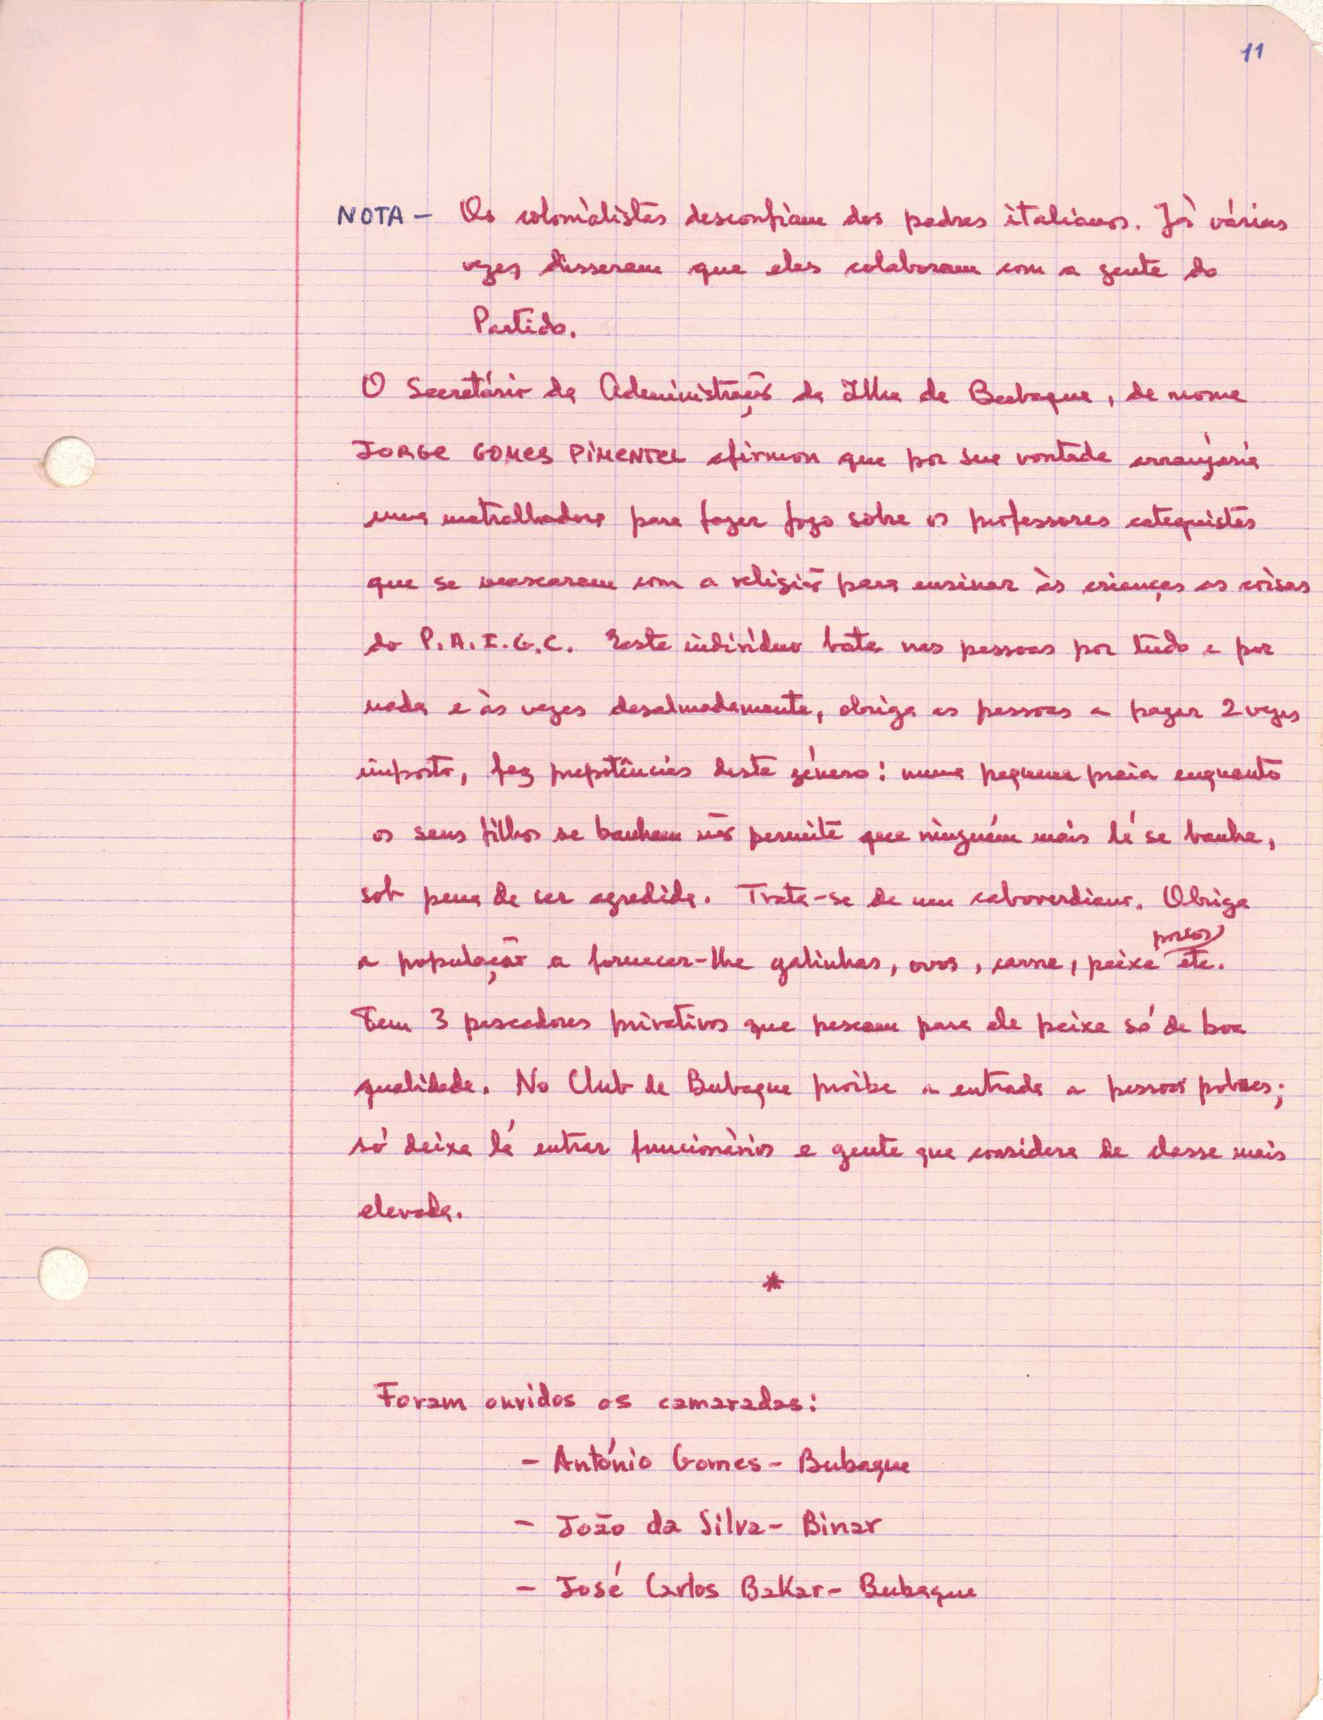 11
NOTA - Os colonialistas desconfiam dos padres italianos. Já várias
vezes disseram que eles colaboram com a gente do
Partido.
O Secretário da Administração da Ilha de Bubaque, de nome
JORGE GOMES PIMENTEL afirmou que por sua vontade arranjaria
uma metralhadora para fazer fogo sobre os professores catequistas
que se mascaram com a religião para ensinar às crianças as coisas
do P.A.I.G.C. Este indivíduo bate nas pessoas por tudo e por
nada e às vezes desalmadamente, obriga as pessoas a pagar 2 vezes
imposto, faz prepotências deste género: numa pequena praia enquanto
os seus filhos se banham não permite que ninguém mais lá se banhe,
sob pena de ser agredida. Trata-se de um caboverdiano. Obriga
a população a fornecer-lhe galinhas, ovos, carne, peixe porcos etc.
Tem 3 pescadores privativos que pescam para ele peixe só de boa
qualidade. No Club de Bubaque proibe a entrada a pessoas pobres;
só deixa lá entrar funcionários e gente que considera de classe mais
elevada.
*
Foram ouvidos os camaradas:
- António Gomes - Bubaque
- João da Silva - Binar
- José Carlos Bakar - Bubaque